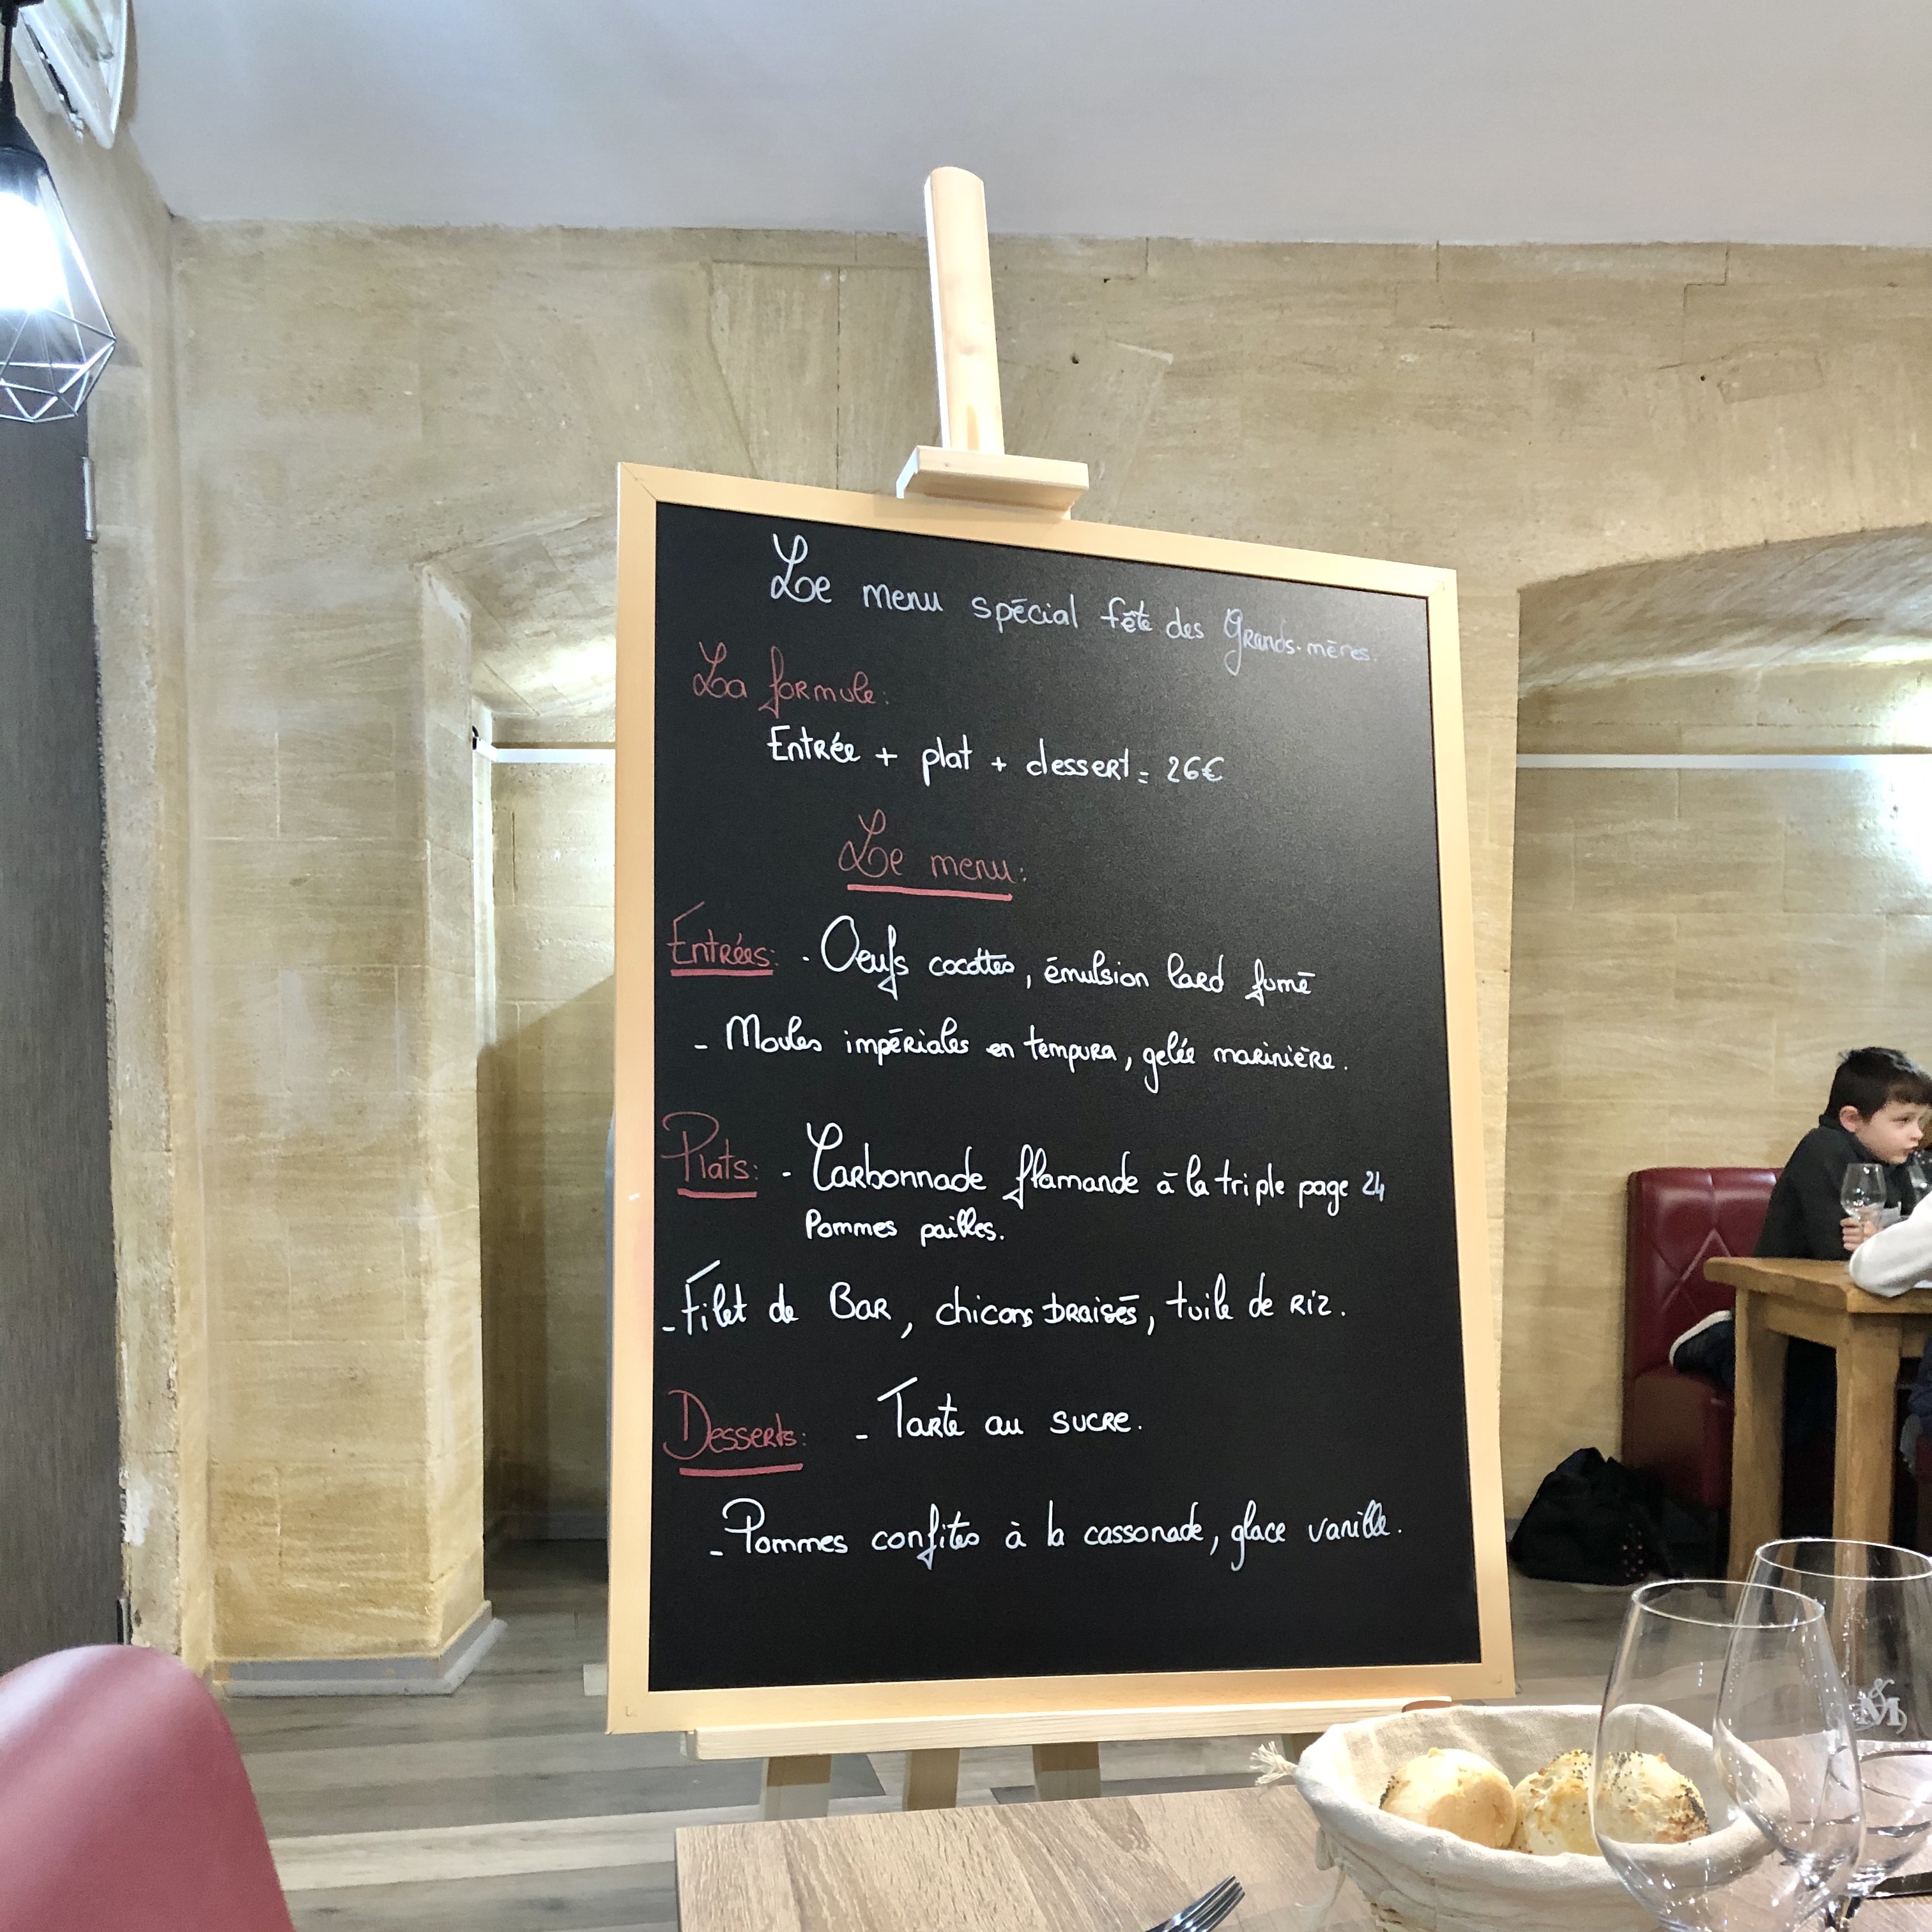 Le menu spécial fête des Grands-mères.
La formule:
Entrée + plat + dessert = 26€
Le menu:
Entrées: - Oeufs cocottes, émulsion lard fumé
- Moules impériales en tempura, gelée marinière.
Plats: - Carbonnade flamande à la triple page 24
Pommes pailles.
- Filet de Bar, chicons braisés, tuile de riz.
Desserts: - Tarte au sucre.
- Pommes confites à la cassonade, glace vanille.